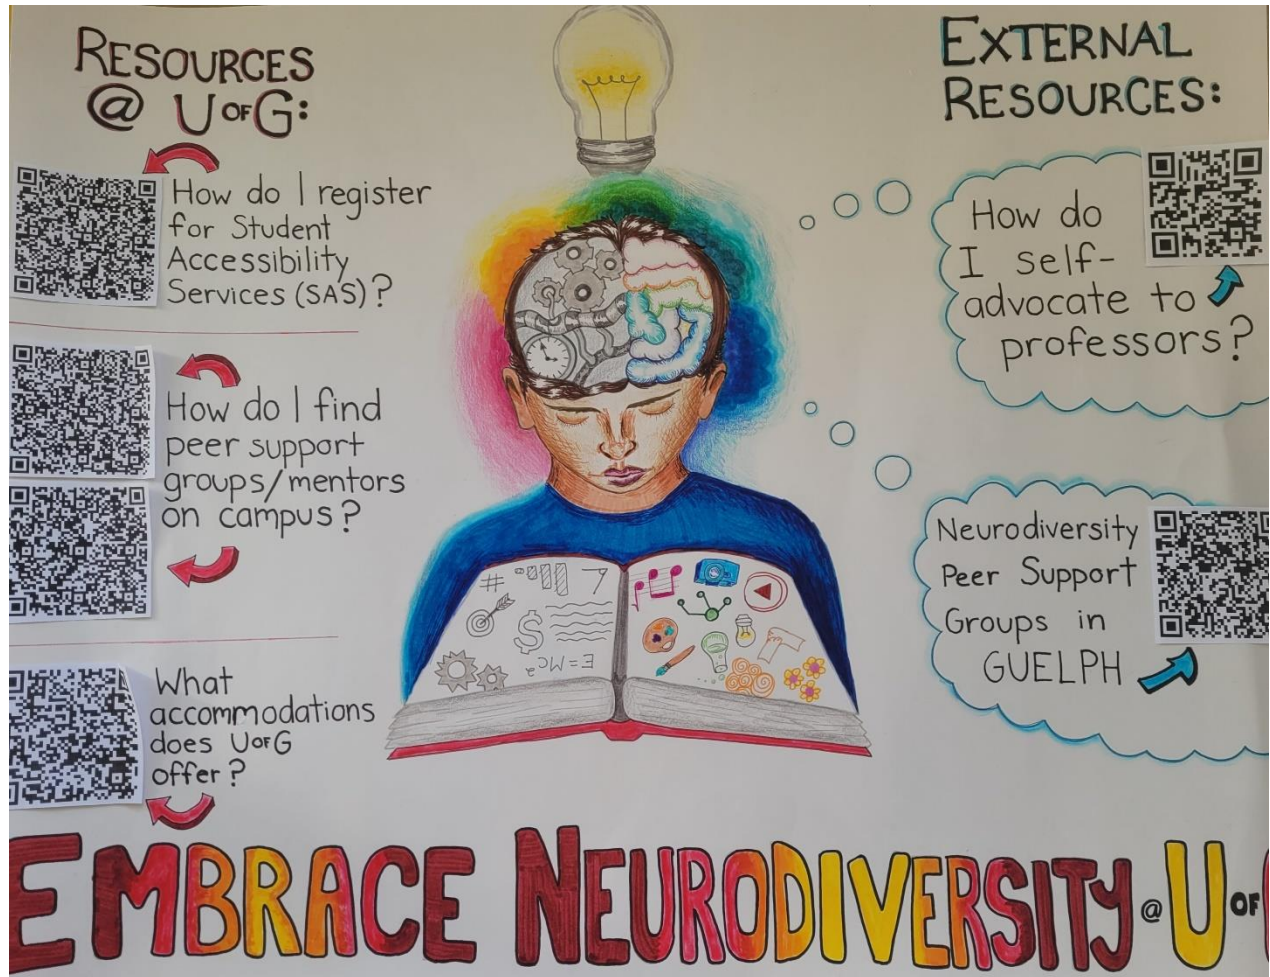 RESOURCES
@ U OF G:
How do I register
for Student
Accessibility
Services (SAS)?
How do I find
peer support
groups/mentors
on campus?
What
accommodations
does U OF G
offer?
EXTERNAL
RESOURCES:
How do
I self-
advocate to
professors?
Neurodiversity
Peer Support
Groups in
GUELPH
#
7
$
E=Mc²
EMBRACE NEURODIVERSITY @ U OF